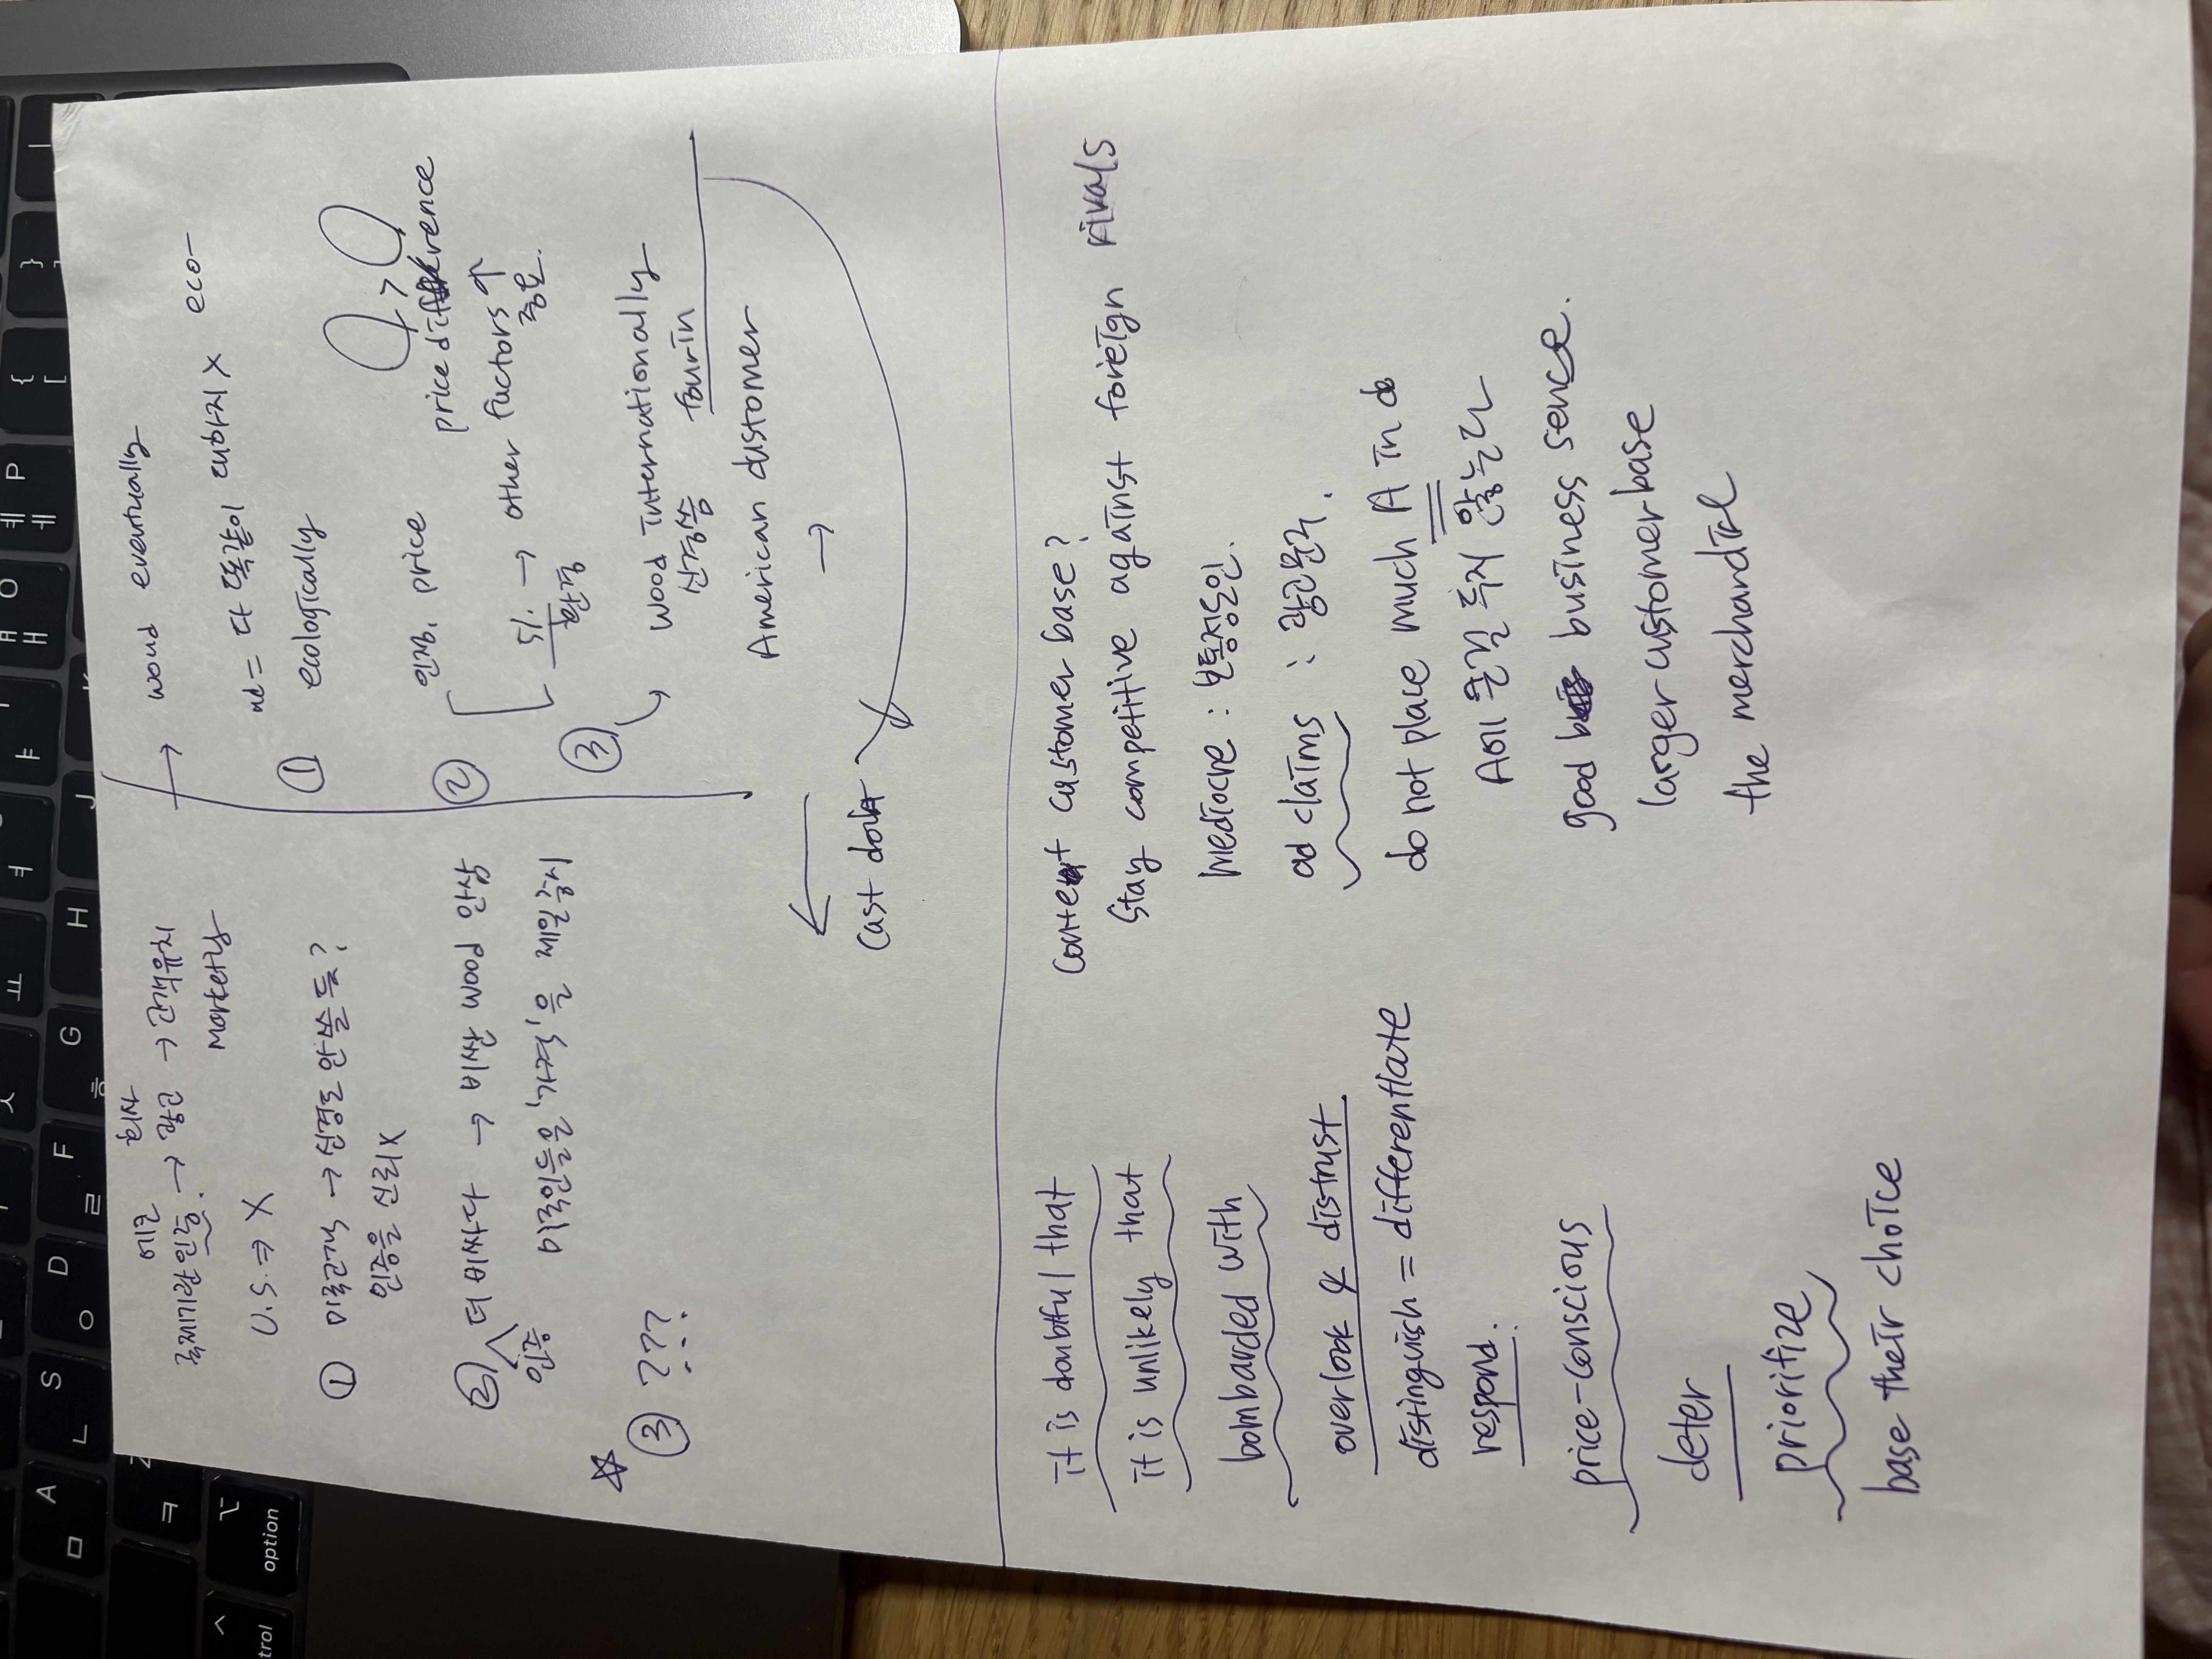 에코 회사
국제기관인증. → 광고 → 고객유치
marketing
U.S. ⇒ X
① 미국고객 → 신경도 안쓸 듯?
인증을 신뢰X
② 더 비싸다 → 비싼 wood 안삼
인증
미국인들은 '가격'을 제일 중시
③ ???
→ woud eventually
ad = 다 똑같이 취하지 X eco-
① ecologically
② 인정. price
price difference
5%. → other factors ↑
한정 중요.
③ wood internationally
신경씀 fourin
American customer
→
←
Cast dout
it is doubtful that
it is unlikely that
bombarded with
overlook & distrust
distinguish = differentiate
respond.
price-conscious
deter
prioritize
base their choice
customer base?
Stay competitive against foreign rivals
Mediocre : 보통정도인.
ad claims : 광고문구.
do not place much A in do
A에 울길 주지 않는다
good business sence.
larger customer base
the merchandise
option